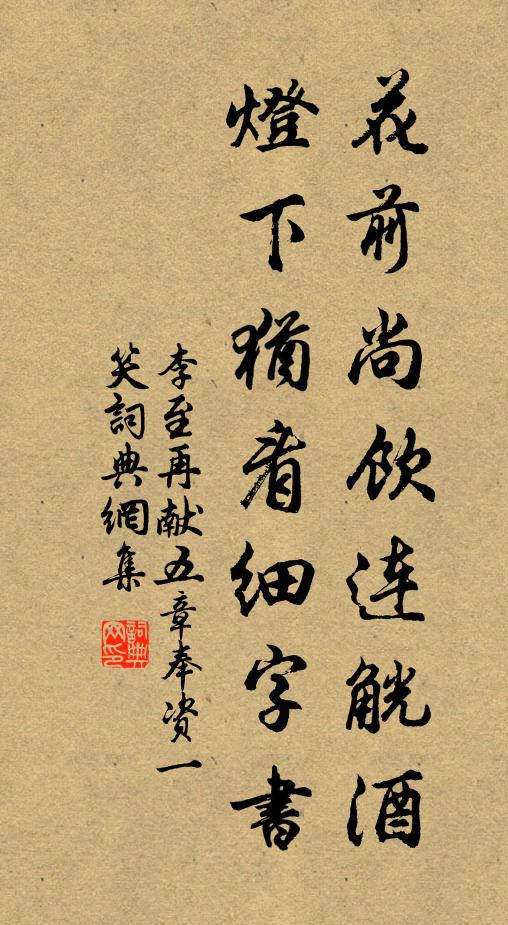 花前尚飲連觥酒
燈下猶看細字書
李至再献五章奉资一
笑詞典網集
詞典
网印